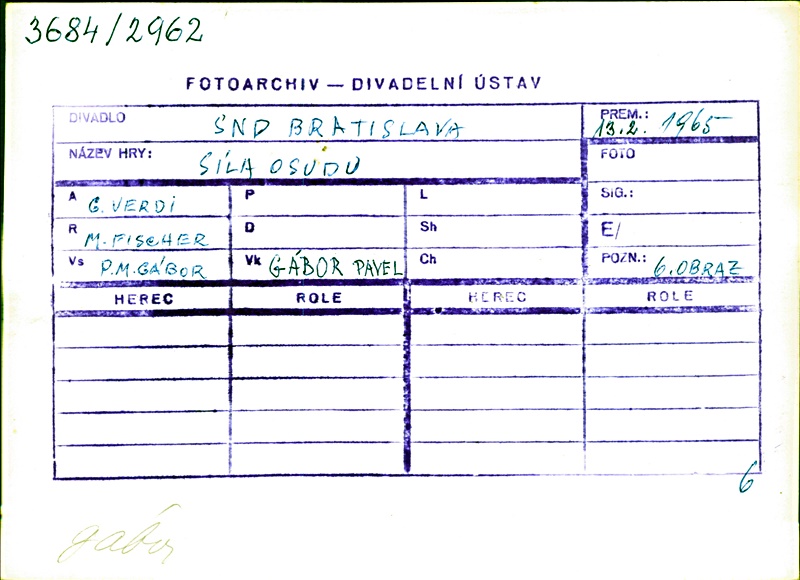 3684/2962
FOTOARCHIV — DIVADELNÍ ÚSTAV
DIVADLO SND BRATISLAVA PREM.: 13.2. 1965
NÁZEV HRY: SÍLA OSUDU FOTO
A G. VERDI P L SIG.:
R M. FISCHER D Sh E/
Vs P.M. GÁBOR Vk GÁBOR PAVEL Ch POZN.: 6. OBRAZ
HEREC ROLE HEREC ROLE
6
gábor